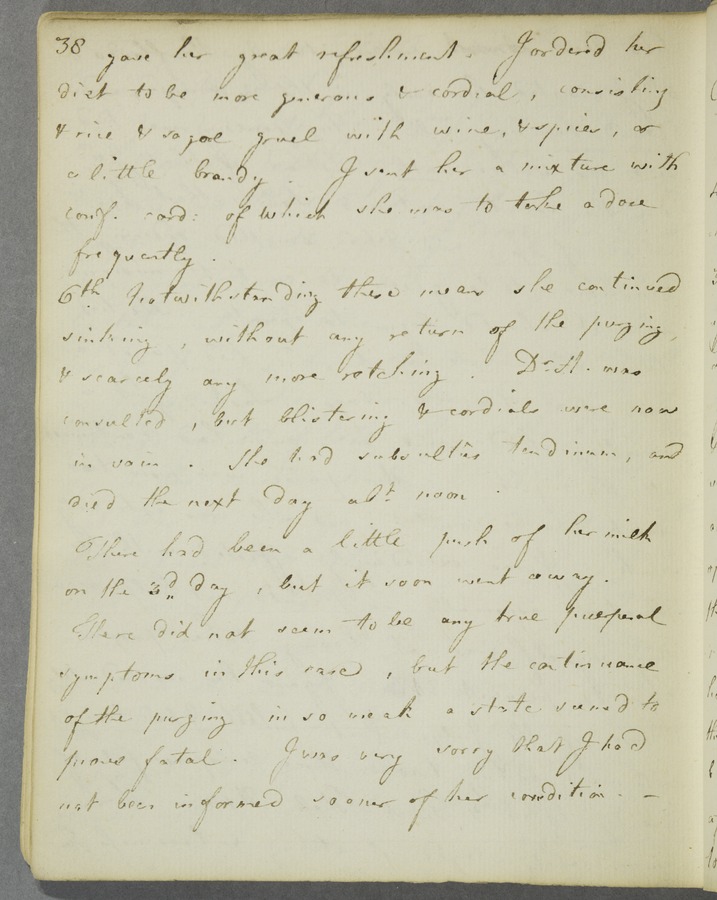 38 gave her great refreshment. I ordered her
diet to be more generous & cordial, consisting
& rice & sagoe gruel with wine, & spices, or
a little brandy. I sent her a mixture with
conf. card: of which she was to take a dose
frequently.
6th Notwithstanding these means she continued
sinking, without any return of the purging,
& scarcely any more retching. Dr. H. was
consulted, but blistering & cordials were now
in vain. She had subsultus tendinum, and
died the next day abt. noon.
There had been a little push of her milk
on the 3d. day, but it soon went away.
There did not seem to be any true puerperal
symptoms in this case, but the continuance
of the purging in so weak a state seemed to
prove fatal. I was very sorry that I had
not been informed sooner of her condition. —